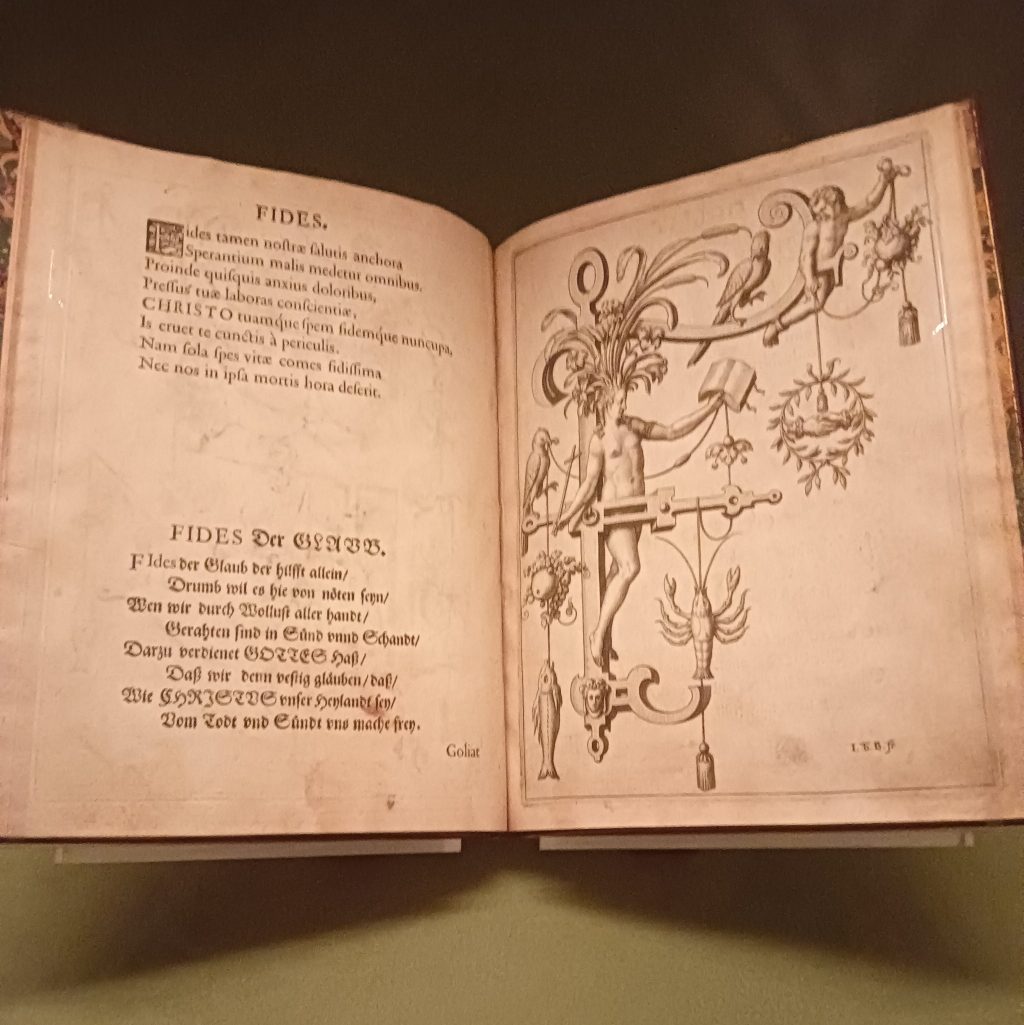 FIDES.
Fides tamen noſtræ ſalutis anchora
Sperantium malis medetur omnibus.
Proinde quiſquis anxius doloribus,
Preſſus tuæ laboras conſcientiæ,
CHRISTO tuamque ſpem fidemque nuncupa,
Is eruet te cunctis à periculis.
Nam ſola ſpes vitæ comes fidiſſima
Nec nos in ipſa mortis hora deſerit.
FIDES Der GLAVB.
FIdes der Glaub der hilfft allein/
Drumb wil es hie von nöten ſeyn/
Wen wir durch Wolluſt aller handt/
Gerahten ſind in Sünd vnnd Schandt/
Darzu verdienet GOTTES Haß/
Daß wir denn veſtig gläuben/daß/
Wie CHRISTVS vnſer Heylandt ſey/
Vom Todt vnd Sündt vns mache frey.
Goliat